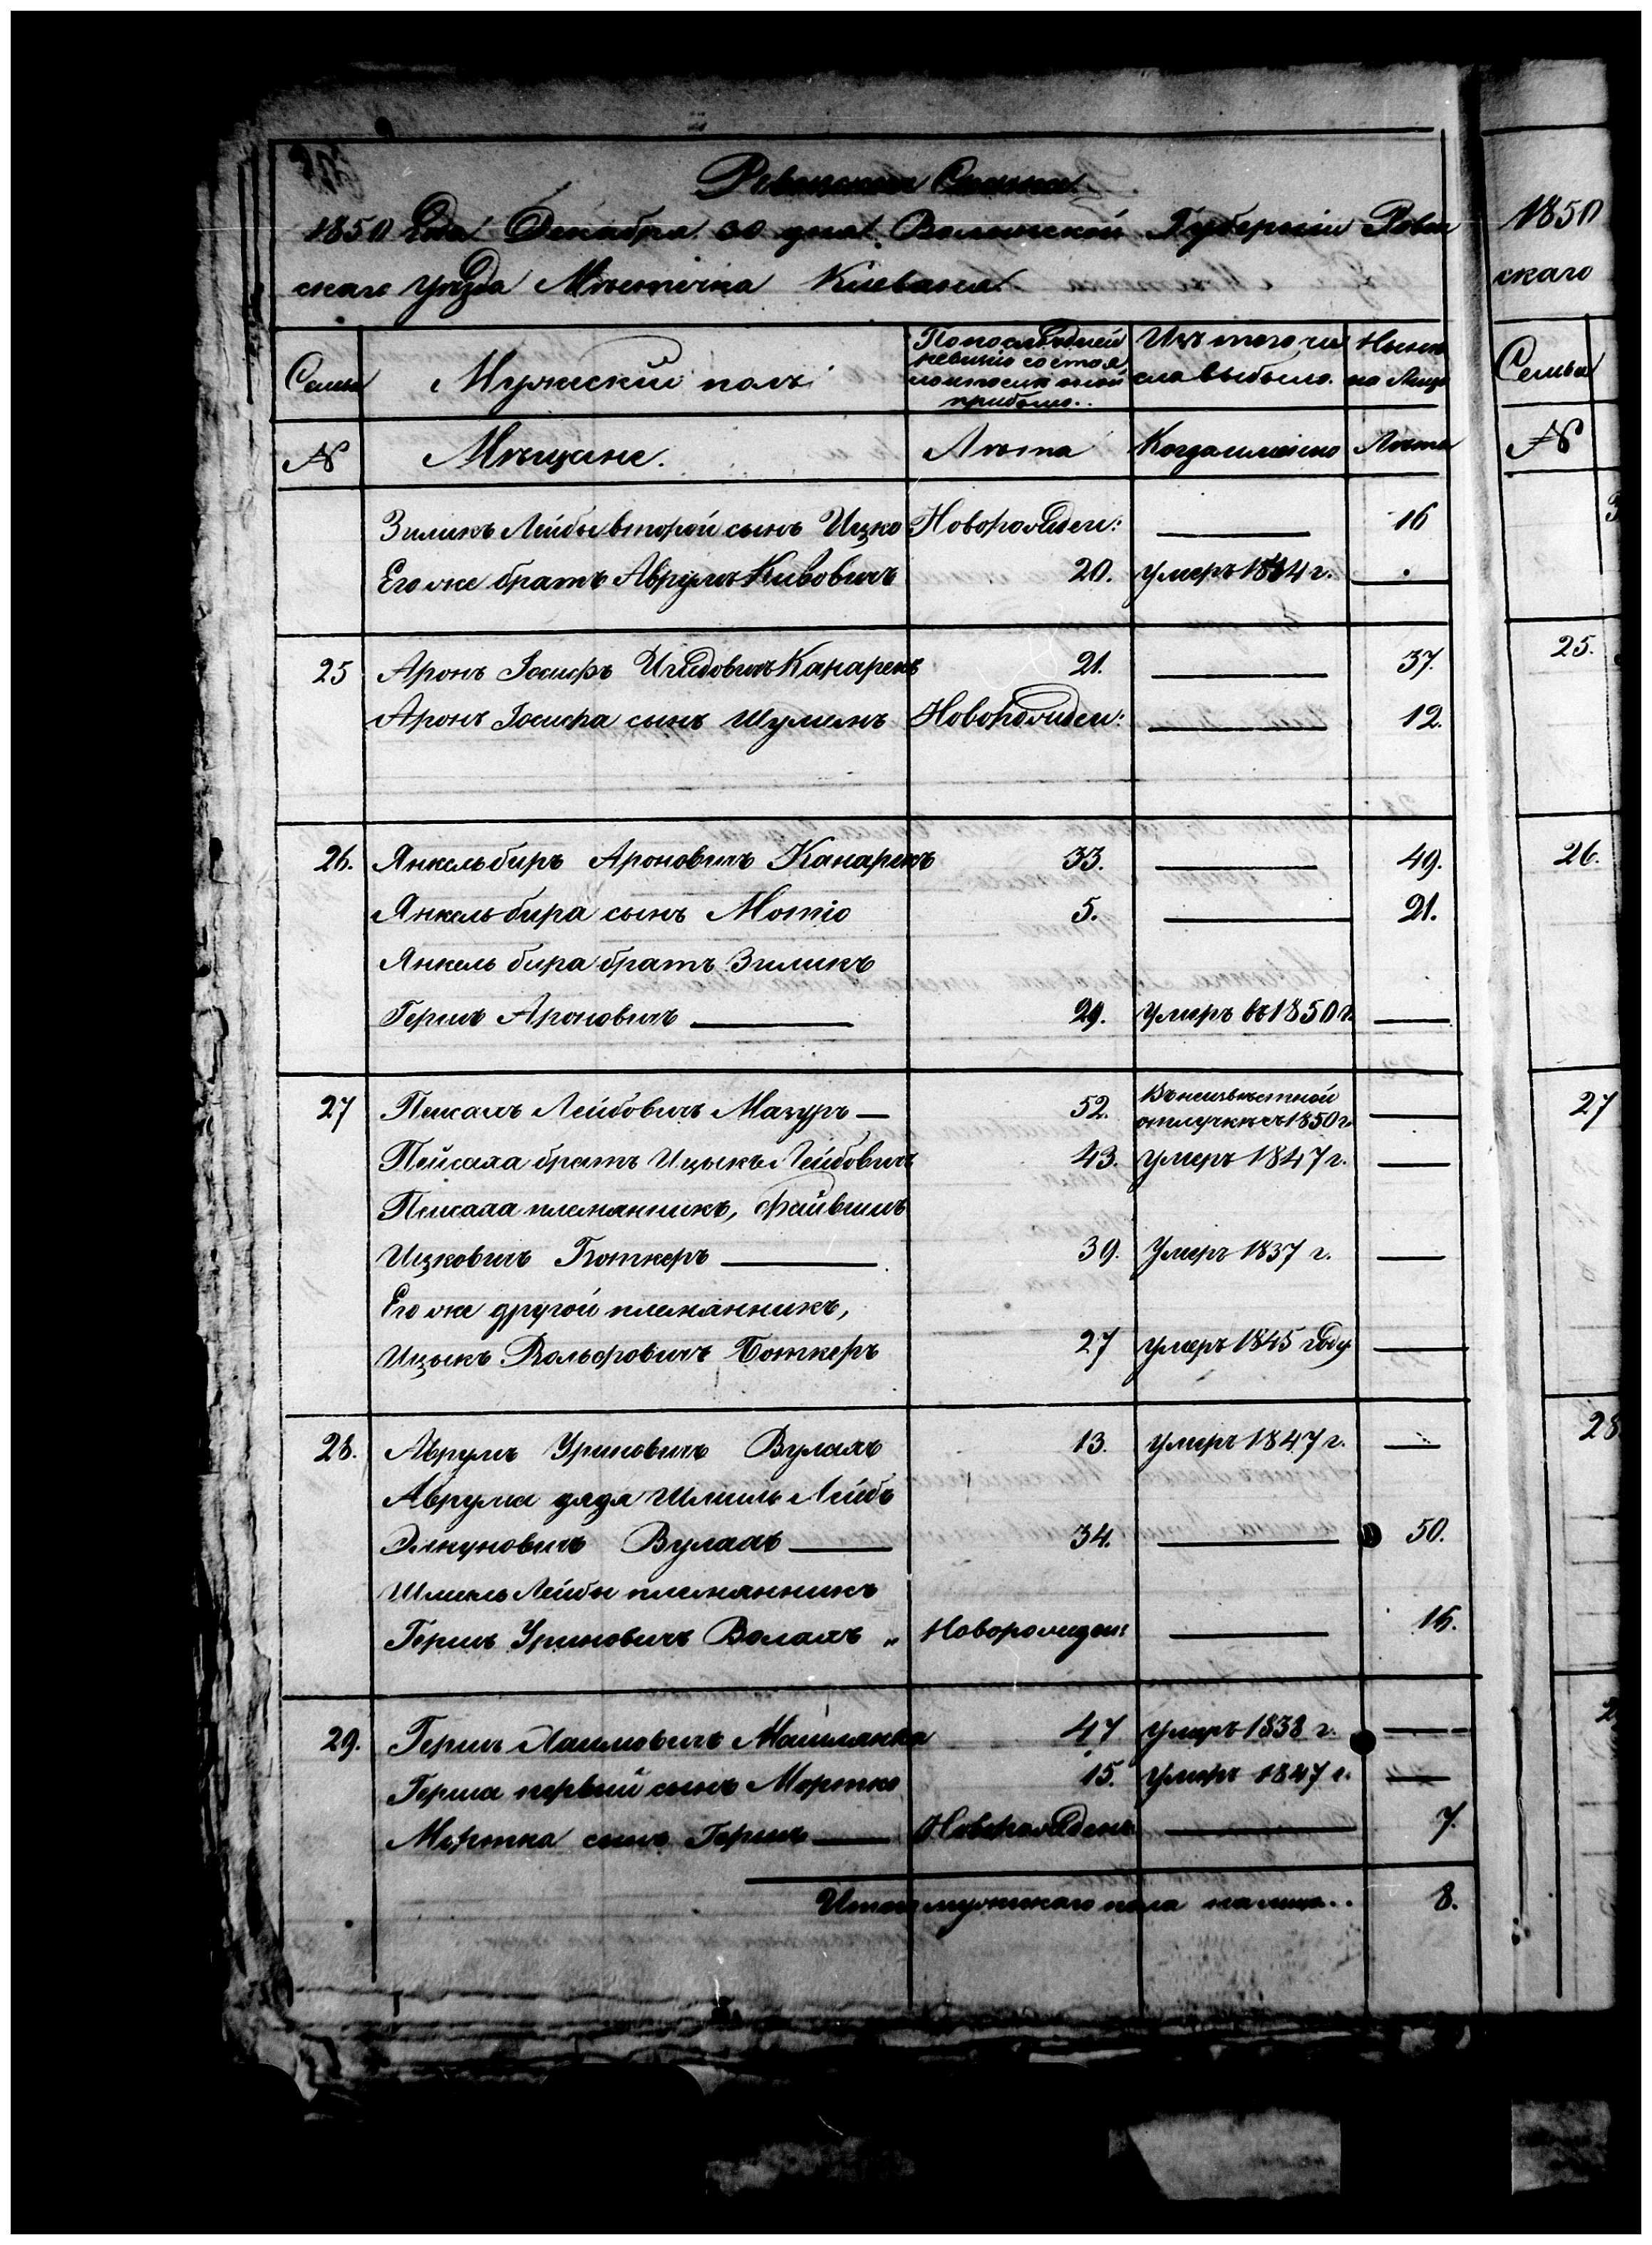 Ревизская Сказка
1850 Года Декабря 30 дня. Волынской Губерніи Ровен
скаго уѣзда Мѣстечка Клеваня.
Семьи
Мужескій полъ
По последней ревизіи состояло и после оной прибыло..
Изъ того числа выбыло.
Нынѣ на лицо
№
Мѣщане.
Лѣта
Когда именно
Лѣта
Зиликъ Лейбы второй сынъ Ицко Новорожден: — 16
Его же братъ Аврумъ Кивовичъ 20. умеръ 1844 г. —
25 Аронъ Іосифъ Канарекъ 21. — 37.
Аронъ Іосифа сынъ Шулимъ Новорожден: — 12.
26. Янкель биръ Ароновичъ Канарекъ 33. — 49.
Янкель бира сынъ Мотіо 5. — 21.
Янкель бира братъ Зиликъ
Гершъ Ароновичъ — 29. умеръ въ 1850 г. —
27 Пейсахъ Лейбовичъ Мазуръ — 52. Въ неизвѣстной отлучкѣ съ 1850 г. —
Пейсаха братъ Ицыкъ Лейбовичъ 43. умеръ 1847 г. —
Пейсаха племянникъ, Файвишъ
Ицковичъ Боткеръ — 39. Умеръ 1837 г. —
Его же другой племянникъ,
Ицыкъ Вольфовичъ Боткеръ 27 умеръ 1845 году —
28. Аврумъ Уриновичъ Вулахъ 13. умеръ 1847 г. —
Аврума дядя Шмиль Лейбъ
Элкуновичъ Вулахъ — 34. — 50.
Шмиль Лейбы племянникъ
Гершъ Уриновичъ Волахъ „ Новорожден: — 16.
29. Гершъ Хаимовичъ 47 умеръ 1838 г. —
Герша первый сынъ Мортко 15. умеръ 1847 г. —
Мортка сынъ Гершъ — Новорожденъ — 7.
Итого мужескаго пола на лицо.. 8.
1850
скаго
Семьи
№
25.
26.
27
28